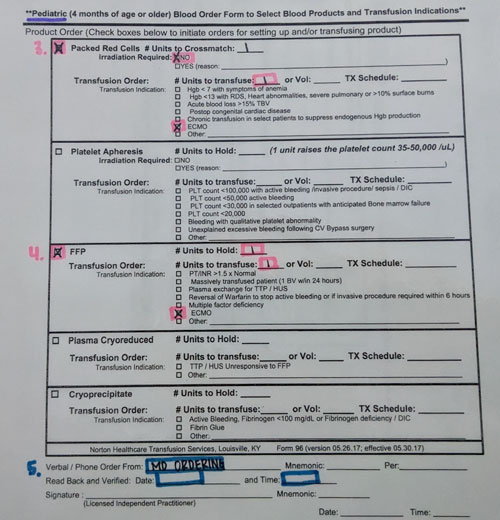 **Pediatric (4 months of age or older) Blood Order Form to Select Blood Products and Transfusion Indications**
Product Order (Check boxes below to initiate orders for setting up and/or transfusing product)
3. ☒ Packed Red Cells # Units to Crossmatch: 1
Irradiation Required: ☒NO
☐YES (reason: )
Transfusion Order: # Units to transfuse: 1 or Vol: TX Schedule:
Transfusion Indication: ☐ Hgb < 7 with symptoms of anemia
☐ Hgb <13 with RDS, Heart abnormalities, severe pulmonary or >10% surface burns
☐ Acute blood loss >15% TBV
☐ Postop congenital cardiac disease
☐ Chronic transfusion in select patients to suppress endogenous Hgb production
☒ ECMO
☐ Other:
☐ Platelet Apheresis # Units to Hold: (1 unit raises the platelet count 35-50,000 /uL)
Irradiation Required: ☐NO
☐YES (reason: )
Transfusion Order: # Units to transfuse: or Vol: TX Schedule:
Transfusion Indication: ☐ PLT count <100,000 with active bleeding /invasive procedure/ sepsis / DIC
☐ PLT count <50,000 active bleeding
☐ PLT count <30,000 in selected outpatients with anticipated Bone marrow failure
☐ PLT count <20,000
☐ Bleeding with qualitative platelet abnormality
☐ Unexplained excessive bleeding following CV Bypass surgery
☐ Other:
4. ☒ FFP # Units to Hold: 1
Transfusion Order: # Units to transfuse: 1 or Vol: TX Schedule:
Transfusion Indication: ☐ PT/INR >1.5 x Normal
☐ Massively transfused patient (1 BV w/in 24 hours)
☐ Plasma exchange for TTP / HUS
☐ Reversal of Warfarin to stop active bleeding or if invasive procedure required within 6 hours
☐ Multiple factor deficiency
☒ ECMO
☐ Other:
☐ Plasma Cryoreduced # Units to Hold:
Transfusion Order: # Units to transfuse: or Vol: TX Schedule:
Transfusion Indication: ☐ TTP / HUS Unresponsive to FFP
☐ Other:
☐ Cryoprecipitate # Units to Hold:
Transfusion Order: # Units to transfuse: or Vol: TX Schedule:
Transfusion Indication: ☐ Active Bleeding, Fibrinogen <100 mg/dL or Fibrinogen deficiency / DIC
☐ Fibrin Glue
☐ Other:
Norton Healthcare Transfusion Services, Louisville, KY Form 96 (version 05.26.17; effective 05.30.17)
5. Verbal / Phone Order From: MD ORDERING Mnemonic: Per:
Read Back and Verified: Date: and Time:
Signature : Mnemonic:
(Licensed Independent Practitioner)
Date: Time: